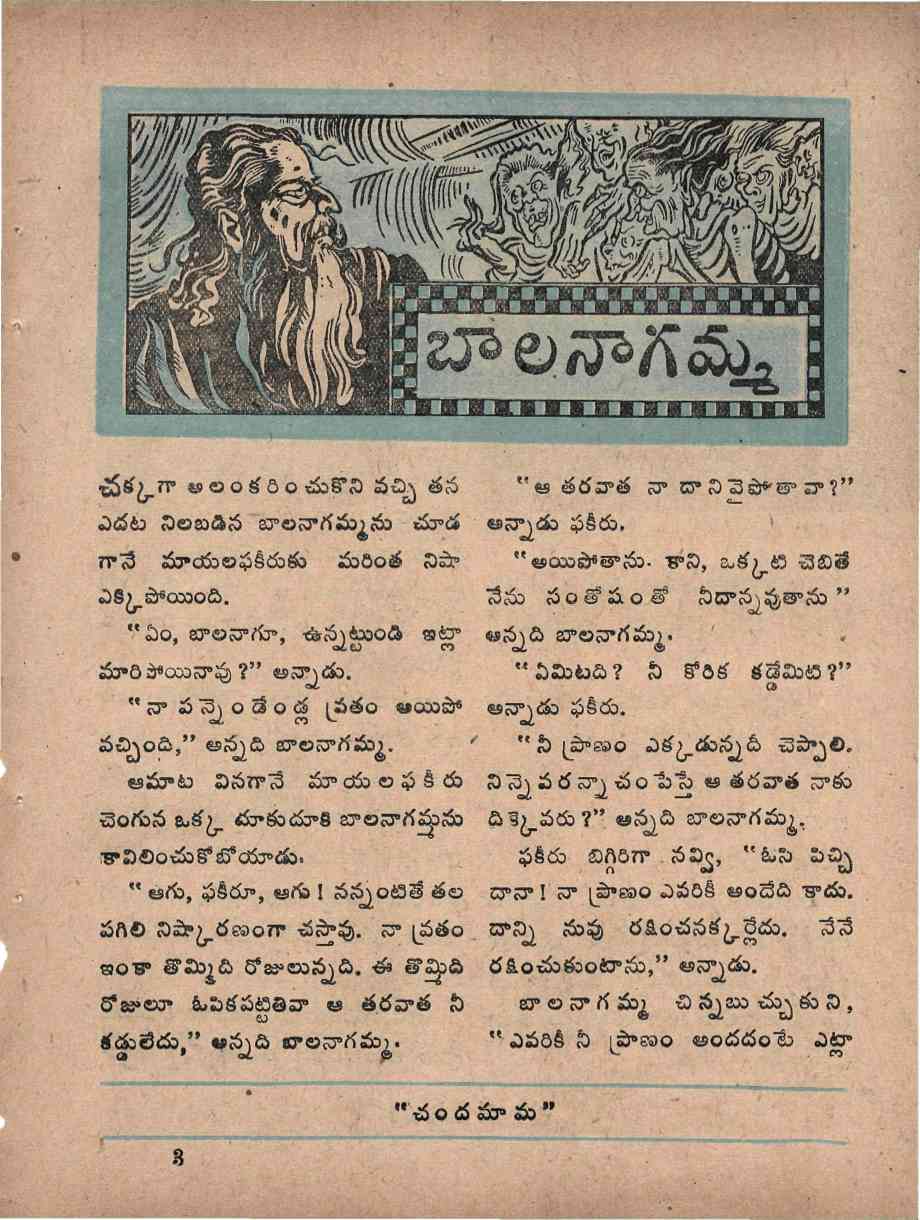 బాలనాగమ్మ
చక్కగా అలంకరించుకొని వచ్చి తన
ఎదట నిలబడిన బాలనాగమ్మను చూడ
గానే మాయలఫకీరుకు మరింత నిషా
ఎక్కిపోయింది.
“ఏం, బాలనాగూ, ఉన్నట్టుండి ఇట్లా
మారిపోయినావు ?” అన్నాడు.
“నా పన్నెండేండ్ల వ్రతం అయిపో
వచ్చింది,” అన్నది బాలనాగమ్మ.
ఆమాట వినగానే మాయలఫకీరు
చెంగున ఒక్క దూకుదూకి బాలనాగమ్మను
కావిలించుకోబోయాడు.
“ఆగు, ఫకీరూ, ఆగు ! నన్నంటితే తల
పగిలి నిష్కారణంగా చస్తావు. నా వ్రతం
ఇంకా తొమ్మిది రోజులున్నది. ఈ తొమ్మిది
రోజులూ ఓపికపట్టితివా ఆ తరవాత నీ
కడ్డులేదు,” అన్నది బాలనాగమ్మ.
“ఆ తరవాత నా దానివైపోతావా ?”
అన్నాడు ఫకీరు.
“అయిపోతాను. కాని, ఒక్కటి చెబితే
నేను సంతోషంతో నీదాన్నవుతాను”
అన్నది బాలనాగమ్మ.
“ఏమిటది ? నీ కోరిక కడ్డేమిటి ?”
అన్నాడు ఫకీరు.
“నీ ప్రాణం ఎక్కడున్నదీ చెప్పాలి.
నిన్నెవరన్నా చంపేస్తే ఆ తరవాత నాకు
దిక్కెవరు ?” అన్నది బాలనాగమ్మ.
ఫకీరు బిగ్గిరిగా నవ్వి, “ఓసి పిచ్చి
దానా ! నా ప్రాణం ఎవరికీ అందేది కాదు.
దాన్ని నువు రక్షించనక్కర్లేదు. నేనే
రక్షించుకుంటాను,” అన్నాడు.
బాలనాగమ్మ చిన్నబుచ్చుకుని,
“ఎవరికీ నీ ప్రాణం అందదంటే ఎట్లా
“చందమామ”
3